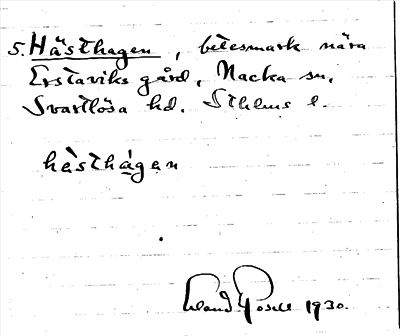 5. Hästhagen, betesmark nära
Erstaviks gård, Nacka sn,
Svartlösa hd. Sthlms l.
hὲsthágan
Erland Rosell 1930.